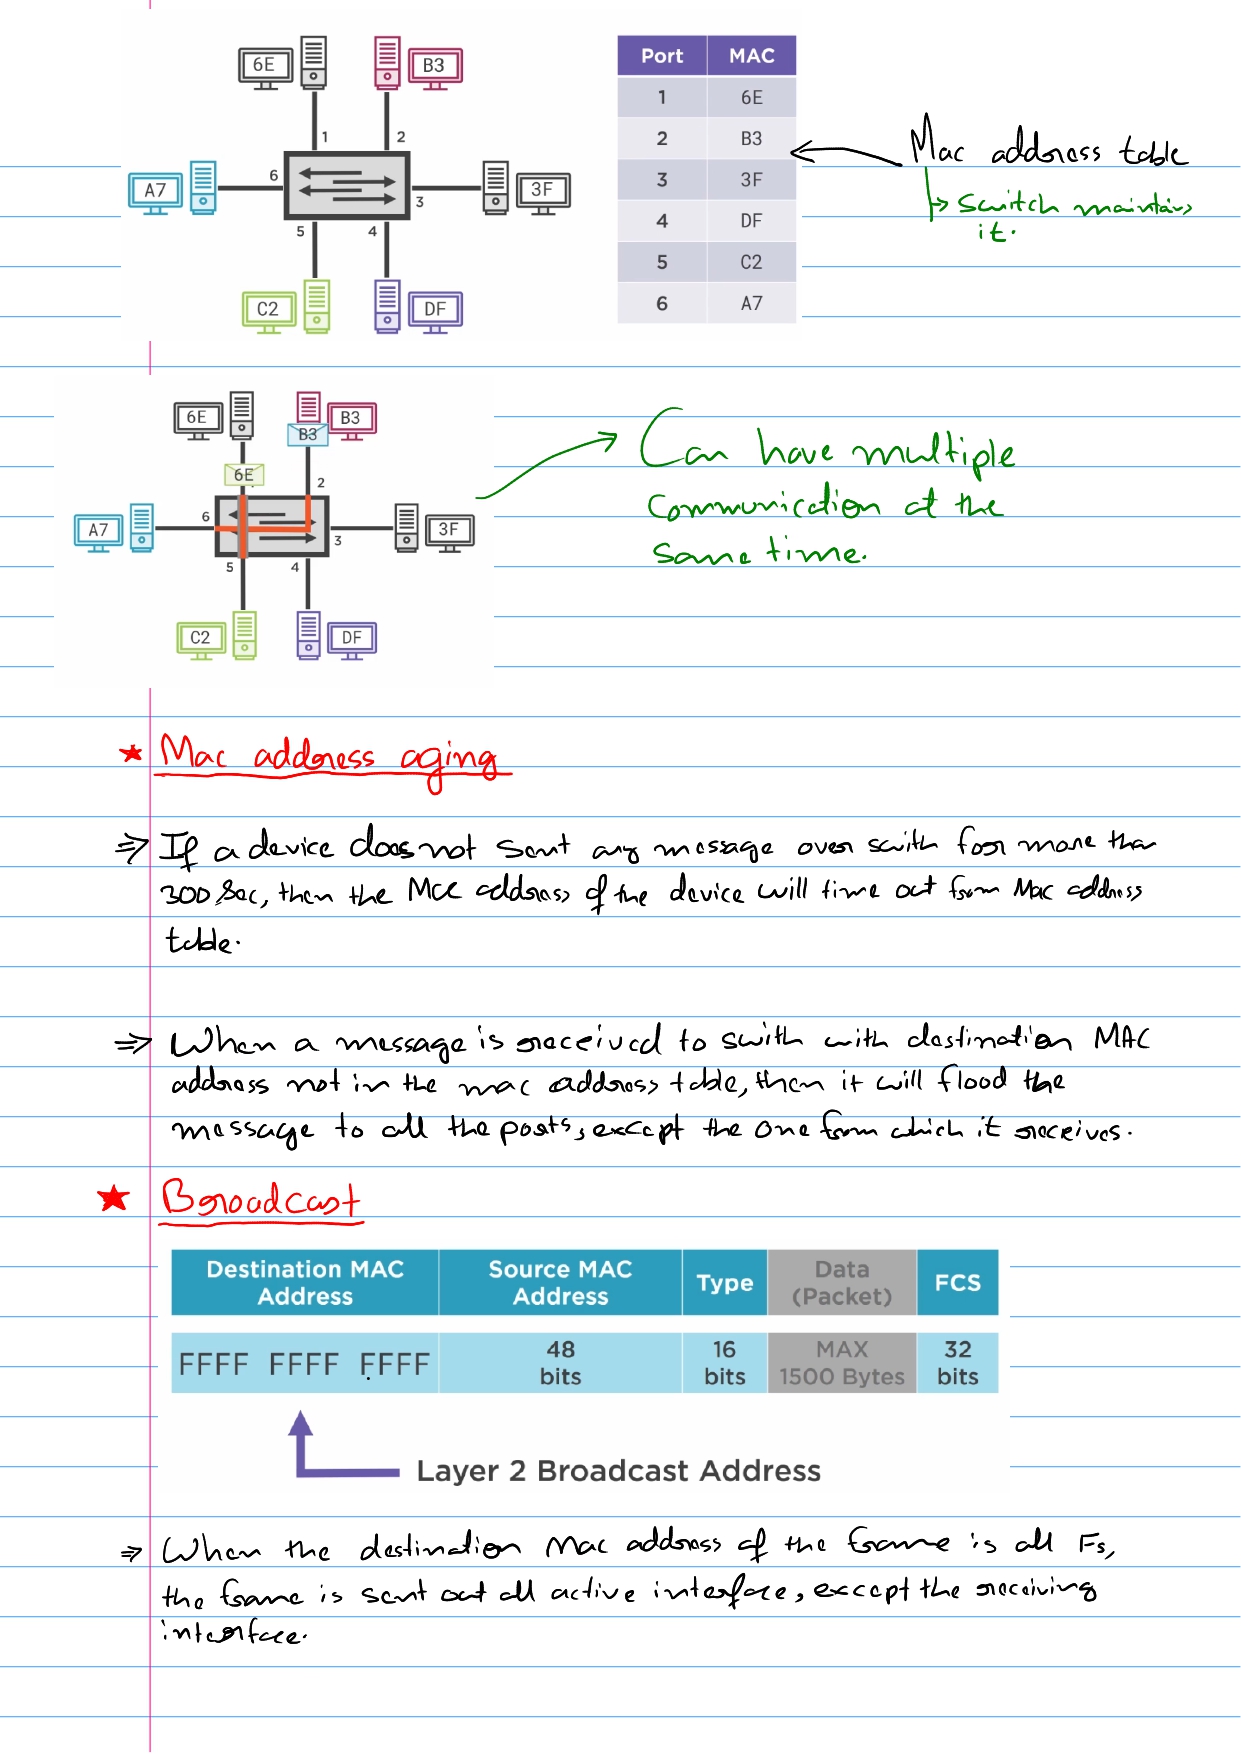 6E
B3
1
2
A7
6
3
3F
5
4
C2
DF
Port MAC
1 6E
2 B3
3 3F
4 DF
5 C2
6 A7
Mac address table
Switch maintains
it.
6E
B3
B3
6E
2
A7
6
3
3F
5
4
C2
DF
Can have multiple
Communication at the
Same time.
Mac address aging
If a device does not sent any message over swith for more than
300 Sec, then the Mac address of the device will time out from Mac address
table.
When a message is received to swith with destination MAC
address not in the mac address table, then it will flood the
message to all the ports, except the one from which it receives.
Broadcast
Destination MAC Address Source MAC Address Type Data (Packet) FCS
FFFF FFFF FFFF 48 bits 16 bits MAX 1500 Bytes 32 bits
Layer 2 Broadcast Address
When the destination Mac address of the frame is all Fs,
the frame is sent out all active interface, except the receiving
interface.